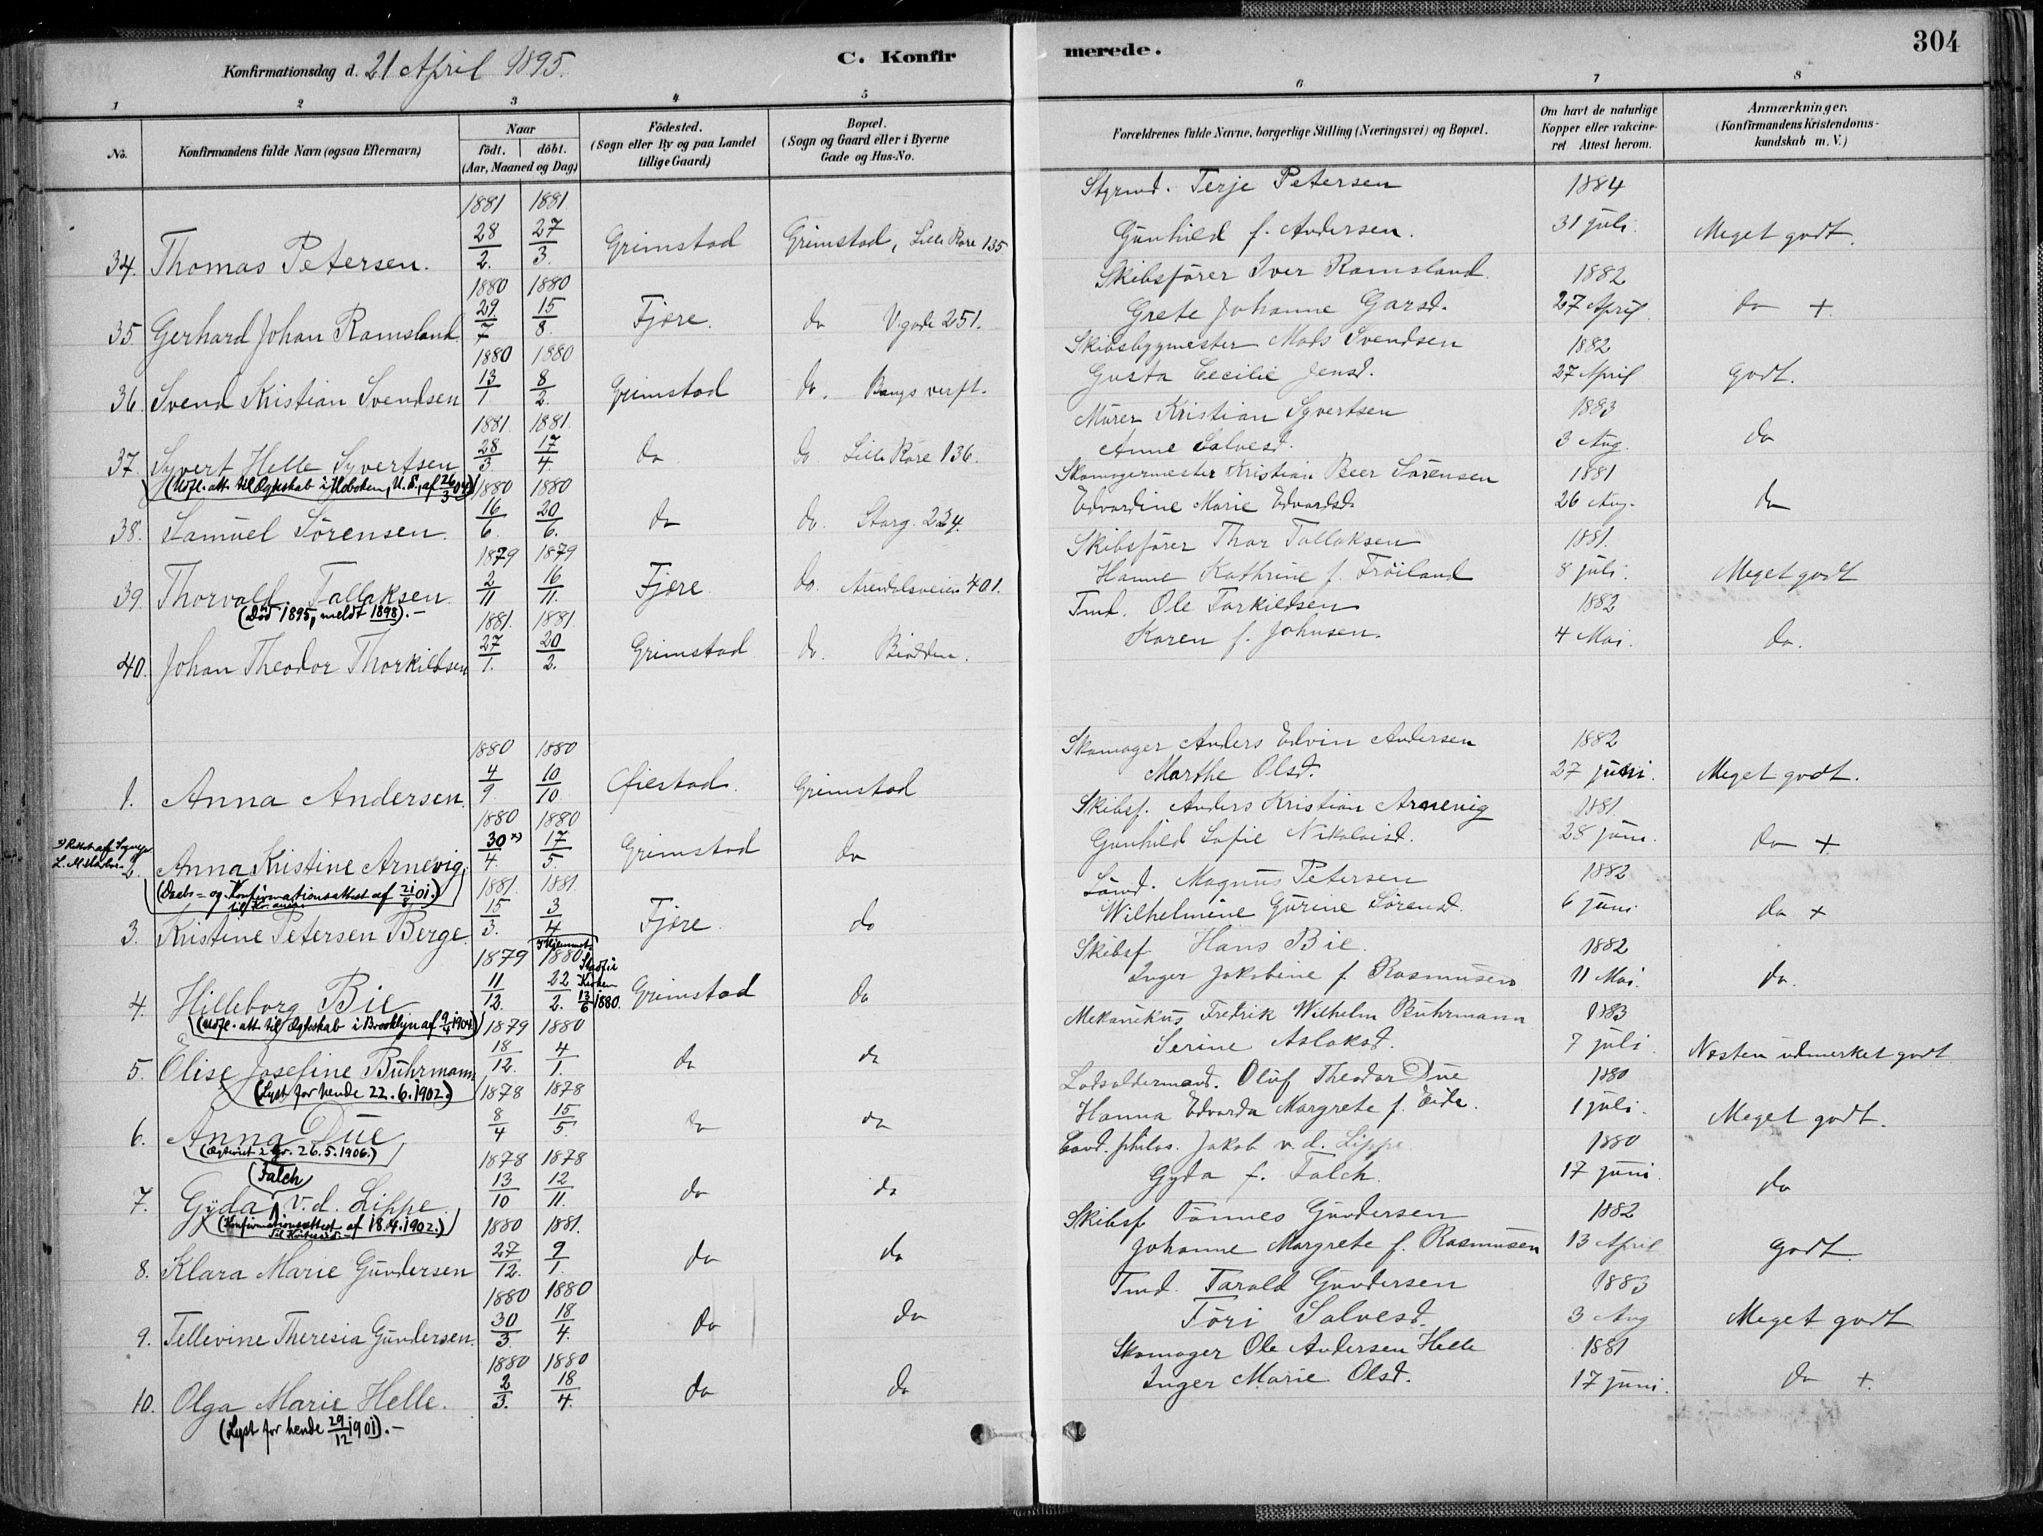 304
Konfirmationsdag d. 21 April 1895.
C. Konfir merede.
1 2 3 4 5 6 7 8
No.
Konfirmandens fulde Navn (ogsaa Efternavn)
Naar
født. døbt.
(Aar, Maaned og Dag)
Fødested.
(Sogn eller By og paa Landet
tillige Gaard)
Bopæl.
(Sogn og Gaard eller i Byerne
Gade og Hus-No.
Forældrenes fulde Navne, borgerlige Stilling (Næringsvei) og Bopæl.
Om havt de naturlige
Kopper eller vakcine-
ret Attest herom.
Anmærkninger.
(Konfirmandens Kristendoms-
kundskab m. V.)
1881 1881 Styrmd. Terje Petersen 1884
34. Thomas Petersen. 28/2. 27/3. Grimstad Grimstad, Lille Røre 135 Gunhild f. Andersen. 31 juli Meget godt.
1880 1880 Skibsfører Iver Ramsland. 1882
35. Gerhard Johan Ramsland 29/7 15/8. Fjære. do V. gade 251. Grete Johanne Garsd. 27 April do +
1880 1880 Skibsbygmester Mads Svendsen 1882
36. Svend Kristian Svendsen 13/1. 8/2. Grimstad do. Bangs verft. Gusta Cecilie Jensd. 27 April godt.
1881. 1881. Murer Kristian Syvertsen 1883
37. Syvert Helle Syvertsen 28/3. 17/4. do do Lille Røre 136. Anne Salvesd. 3 Aug. do
(Udfl. att. til Ægteskab i Hoboken, U.S., af 26/3 04) 1880 1880 Skomagermester Kristian Beer Sørensen 1881
38. Samuel Sørensen. 16/6. 20/6. do do. Storg. 234. Edvardine Marie Edvardsd. 26 Aug. do
1879 1879 Skibsfører Thor Tallaksen 1881.
39. Thorvald Tallaksen. 2/11 16/11. Fjære. do. Arendalsveien 401. Hanne Kathrine f. Frøiland 8 juli. Meget godt
(Død 1895, meldt 1898).— 1881 1881 Tmd. Ole Torkildsen 1882
40. Johan Theodor Thorkildsen 27/1. 20/2. Grimstad do. Biodden. Karen f. Johnsen. 4 Mai do.
1880 1880 Skomager Anders Edvin Andersen 1882
1. Anna Andersen. 4/9. 10/10. Øiestad. Grimstad Marthe Olsd. 27 juni. Meget godt.
1880 1880 Skibsf. Anders Kristian Arnevig 1881.
2. Anna Kristine Arnevig. 30 x)/4. 17/5. Grimstad do Gunhild Sofie Nikolaisd. 28 juni. do +
(Daabs- og Konfirmationsattest af 01.) 1881. 1881. Magnus Petersen 1882
3. Kristine Petersen Berge. 15/3. 3/4 Fjære. do Wilhelmine Gurine Sørensd. 6 juni do +
1879 1880 Skibsf. Hans Bie. 1882
4. Hilleborg Bie 11/12. 22/2. Stadf. i Kirken 13/6 1880. Grimstad do Inger Jakobine f. Rasmusen 11 Mai. do.
(Udfl. att. til Ægteskab i Brooklyn af 9/4 1904.) 1879 1880 Mekanikus Fredrik Wilhelm Buhrmann 1883
5. Elise Josefine Buhrmann 18/12. 4/1. do do Serine Aslaksd. 7 juli. Næsten udmerket godt
(Lyst for hende 22.6.1902.) 1878 1878 Lodsoldermand. Oluf Theodor Due 1880
6. Anna Due 8/4 15/5. do do Hanna Edvarda Margrete f. Eide. 1 juli. Meget godt.
(Ægteviet i Gr. 26.5.1906.) 1878 1878 Cand. philos. Jakob v. d. Lippe 1880
(Falch)
7. Gyda v. d. Lippe. 13/10 12/11. do do Gyda f. Falch. 17 juni. do
(Konfirmationsattest af 18.4.1902.) 1880 1881. Skibsf. Tønnes Gundersen 1882
8. Klara Marie Gundersen 27/12. 9/1. do do Johanne Margrete f. Rasmusen 13 April Godt
1880 1880 Tmd. Tarald Gundersen 1883
9. Tellevine Theresia Gundersen. 30/3. 18/4. do do Tori Salvesd. 3 Aug Meget godt
1880 1880 Skomager Ole Andersen Helle 1881
10. Olga Marie Helle. 2/3. 18/4. do do Inger Marie Olsd. 17 juni. do +.
(Lyst for hende 29/12 1901).—